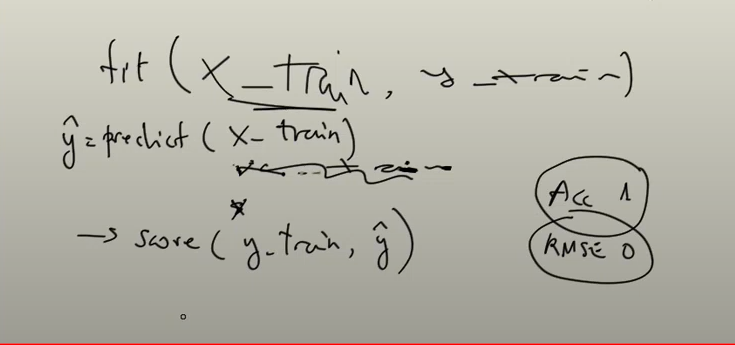 fit (X_train, y_train)
ŷ = predict (X_train)
→ score (y_train, ŷ)
Acc 1
RMSE 0